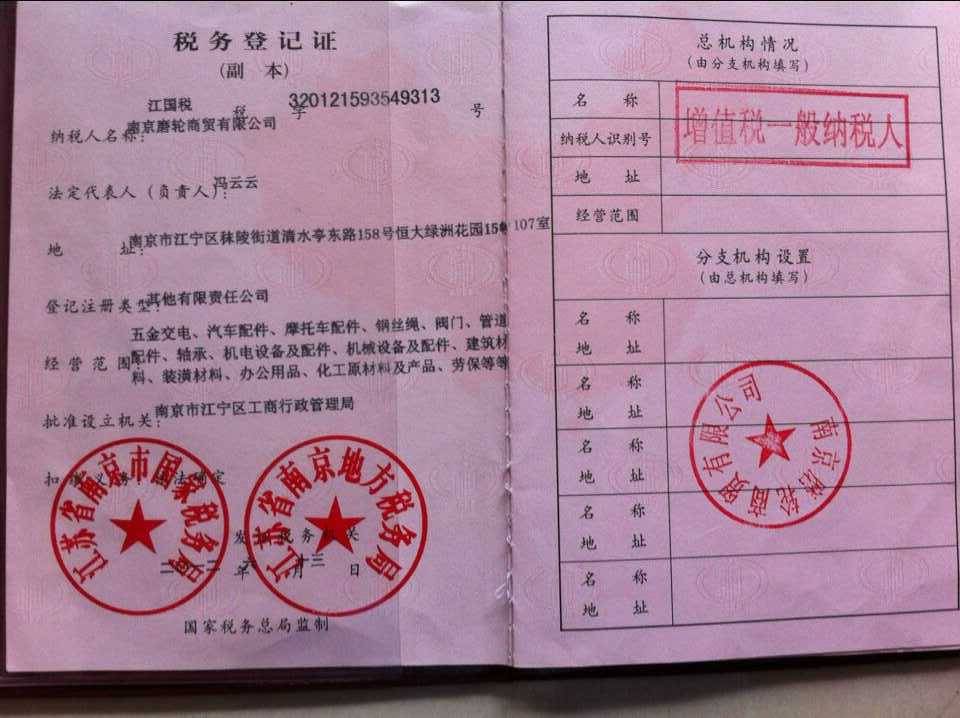 税务登记证
(副 本)
江国税 税 字 320121593549313 号
纳税人名称：南京磨轮商贸有限公司
法定代表人（负责人）：冯云云
地 址：南京市江宁区秣陵街道清水亭东路158号恒大绿洲花园15 107室
登记注册类型：其他有限责任公司
五金交电、汽车配件、摩托车配件、钢丝绳、阀门、管道
经营范围：配件、轴承、机电设备及配件、机械设备及配件、建筑材
料、装潢材料、办公用品、化工原材料及产品、劳保等等
批准设立机关：南京市江宁区工商行政管理局
扣缴义务：依法确定
江苏省南京市国家税务局
江苏省南京地方税务局
发证税务机关
二〇一二 年 六 月 十三 日
国家税务总局监制
总机构情况
(由分支机构填写)
名 称
增值税一般纳税人
纳税人识别号
地 址
经营范围
分支机构设置
(由总机构填写)
名 称
地 址
名 称
地 址
名 称
地 址
名 称
地 址
名 称
地 址
南京磨轮商贸有限公司